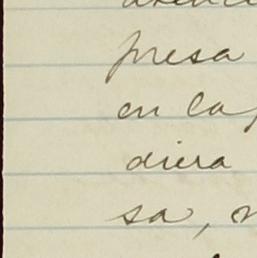 presa
en la
diera
sa,